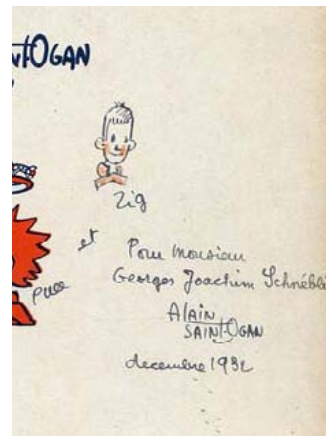 NT-OGAN
Zig
et
Puce
Pour monsieur
Georges Joachim Schnéblé
ALAIN
SAINT-OGAN
decembre 1932